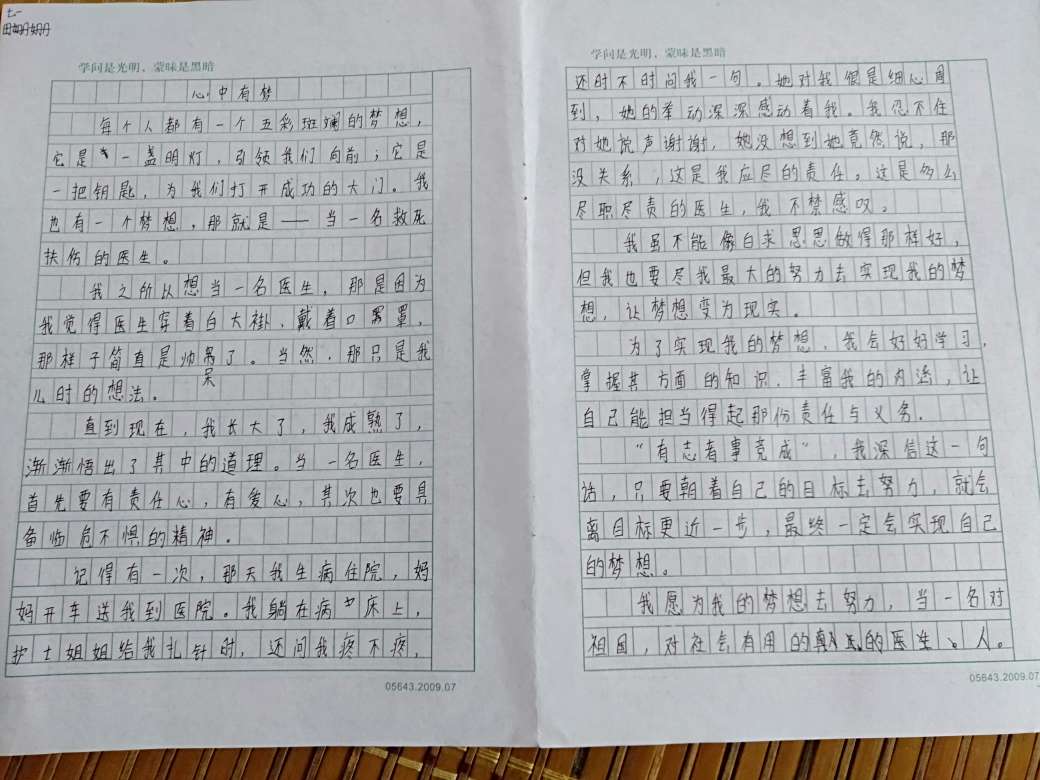 七一
田姗姗
学问是光明，蒙昧是黑暗
心中有梦
每个人都有一个五彩斑斓的梦想，
它是一盏明灯，引领我们向前；它是
一把钥匙，为我们打开成功的大门。我
也有一个梦想，那就是——当一名救死
扶伤的医生。
我之所以想当一名医生，那是因为
我觉得医生穿着白大褂、戴着口罩，
那样子简直是帅呆了。当然，那只是我
儿时的想法。
直到现在，我长大了，我成熟了，
渐渐悟出了其中的道理。当一名医生，
首先要有责任心，有爱心，其次也要具
备临危不惧的精神。
记得有一次，那天我生病住院，妈
妈开车送我到医院。我躺在病床上，
护士姐姐给我扎针时，还问我疼不疼，
05643.2009.07
学问是光明，蒙昧是黑暗
还时不时问我一句。她对我很是细心周
到，她的举动深深感动着我。我忍不住
对她说声谢谢，她没想到她竟然说，那
没关系，这是我应尽的责任。这是多么
尽职尽责的医生，我不禁感叹。
我虽不能像白求恩思做得那样好，
但我也要尽我最大的努力去实现我的梦
想，让梦想变为现实。
为了实现我的梦想，我会好好学习，
掌握其方面的知识，丰富我的内涵，让
自己能担当得起那份责任与义务.
“有志者事竟成”，我深信这一句
话，只要朝着自己的目标去努力，就会
离目标更近一步，最终一定会实现自己
的梦想。
我愿为我的梦想去努力，当一名对
祖国，对社会有用的的医生、人。
05643.2009.07